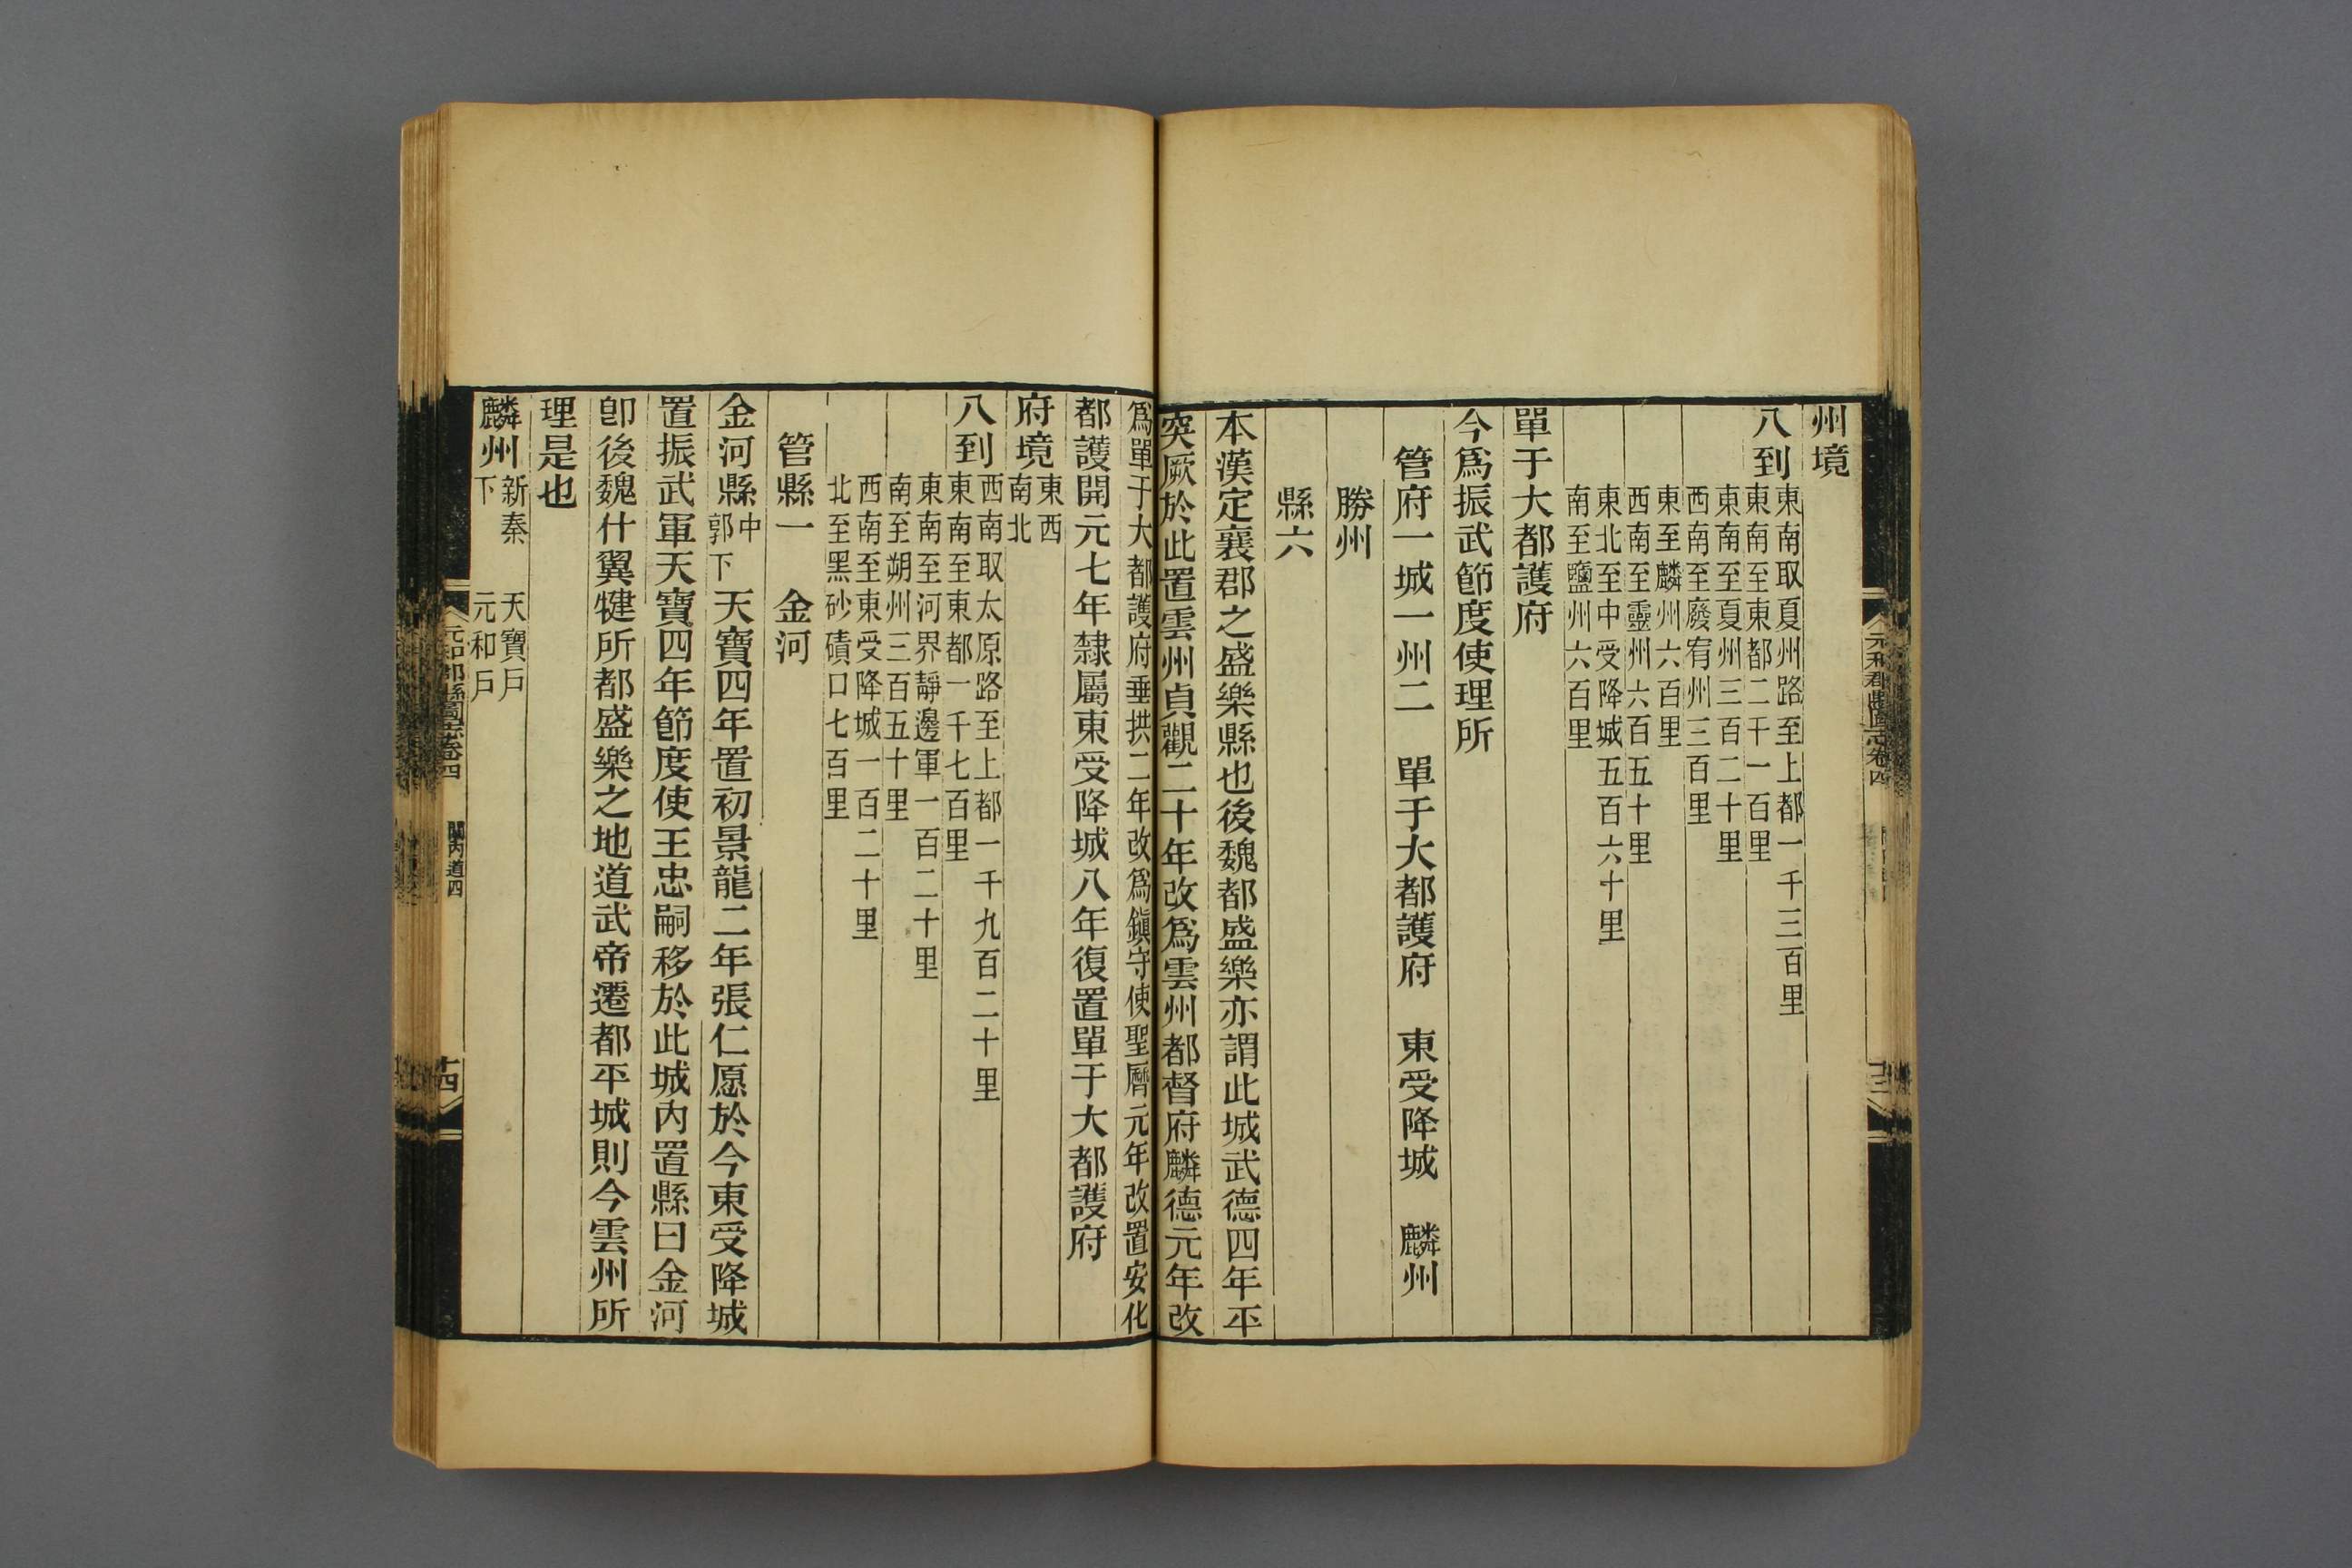 州境
八到東南取夏州路至上都一千三百里
東南至東都二千一百里
東南至夏州三百二十里
西南至廢宥州三百里
東至麟州六百里
西南至靈州六百五十里
東北至中受降城五百六十里
南至鹽州六百里
單于大都護府
今爲振武節度使理所
管府一城一州二　單于大都護府　東受降城　麟州
勝州
縣六
本漢定襄郡之盛樂縣也後魏都盛樂亦謂此城武德四年平
突厥於此置雲州貞觀二十年改爲雲州都督府麟德元年改
爲單于大都護府垂拱二年改爲鎭守使聖曆元年改置安化
都護開元七年隸屬東受降城八年復置單于大都護府
府境東西
南北
八到西南取太原路至上都一千九百二十里
東南至東都一千七百里
東南至河界靜邊軍一百二十里
南至朔州三百五十里
西南至東受降城一百二十里
北至黑砂磧口七百里
管縣一　金河
金河縣中
郭下
天寶四年置初景龍二年張仁愿於今東受降城
置振武軍天寶四年節度使王忠嗣移於此城內置縣曰金河
卽後魏什翼犍所都盛樂之地道武帝遷都平城則今雲州所
理是也
麟州新秦　天寶戶
下　元和戶
元和郡縣圖志卷四　關內道四　十四
元和郡縣圖志卷四　十三